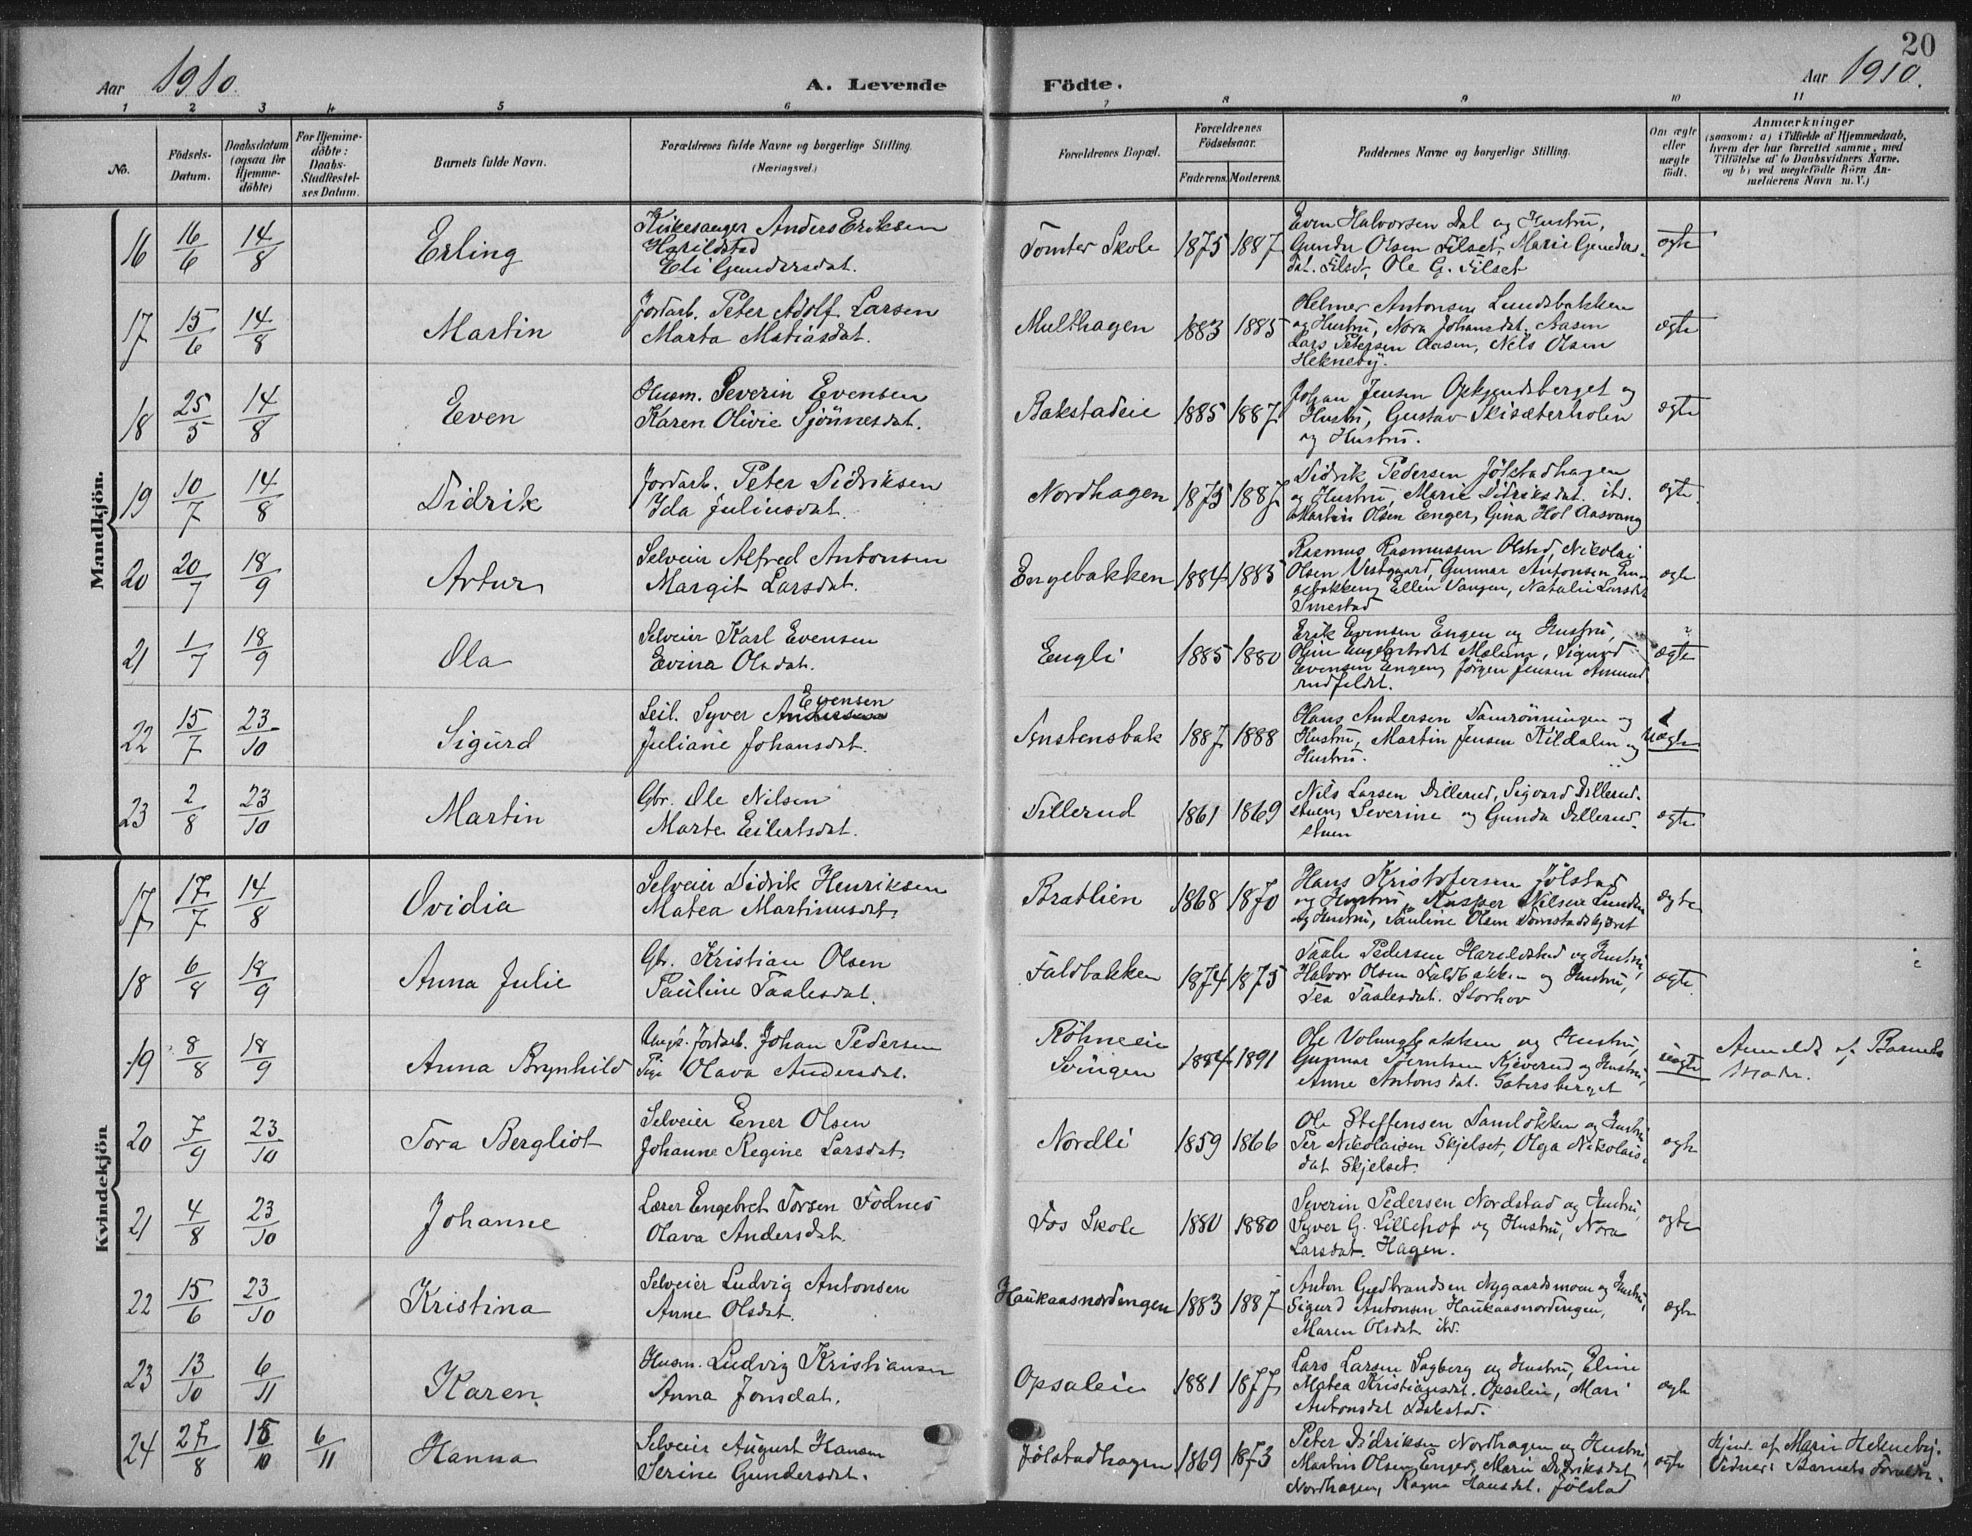 20
Aar 1910. A. Levende Födte. Aar 1910.
1 2 3 4 5 6 7 8 9 10 11
No.
Födsels-
Datum.
Daabsdatum
(ogsaa for
Hjemme-
döbte)
For Hjemme-
döbte:
Daabs-
Stadfæstel-
ses Datum.
Barnets fulde Navn.
Forældrenes fulde Navne og borgerlige Stilling.
(Næringsvei.)
Forældrenes Bopæl.
Forældrenes
Födselsaar.
Faderens. Moderens.
Faddernes Navne og borgerlige Stilling.
Om ægte
eller
uægte
født.
Anmærkninger
(saasom: a) i Tilfælde af Hjemmedaab,
hvem der har forrettet samme, med
Tilföielse af to Daabsvidners Navne,
og b) ved uegtefödte Börn An-
melderens Navn m. V.)
Mandkjön.
16 16/6 14/8 Erling
Kirkesanger Anders Eriksen
Harildstad
Eli Gundersdat.
Tomter Skole 1875 1887
Even Halvorsen Dal og Hustru,
Gunder Olsen Filset, Marie Gunders-
dat. Filset, Ole G. Filset
ægte
17 15/6 14/8 Martin
Jordarb. Peter Adolf Larsen
Marta Matiasdat.
Multhagen 1883 1885
Helmer Antonsen Lundsbakken
og Hustru, Nora Johansdat. Aasen
Lars Petersen Aasen, Nils Olsen
Hekneby.
ægte
18 25/5 14/8 Even
Husm. Severin Evensen
Karen Olivie Sjönnesdat.
Bakstadeie 1885 1887
Johan Jensen Opkjendsberget og
Hustru, Gustav Skisæterholen
og Hustru.
ægte
19 10/7 14/8 Didrik
Jordarb. Peter Didriksen
Ida Juliusdat.
Nordhagen 1875 1887
Didrik Pedersen Jölstadhagen
og Hustru, Marie Didriksdat. ibd.
Martin Olsen Enger, Gina Hol Aasvang
ægte
20 20/7 18/9 Artur
Selveier Alfred Antonsen
Margit Larsdat.
Engebakken 1884 1885
Rasmus Rasmussen Olstad, Nikolai
Olsen Vestgaard, Gunnar Antonsen En-
gebakken, Ellen Vangen, Natalie Larsdat
Smestad
ægte
21 1/7 18/9 Ola
Selveier Karl Evensen
Evina Olsdat.
Engli 1885 1880
Erik Evensen Engen og Hustru,
Oline Engebretsdat Mælum, Sigurd
Evensen Engen, Jörgen Jensen Amund-
rudfeldet.
ægte
22 15/7 23/10 Sigurd
Evensen
Leil. Syver Andersen
Juliane Johansdat.
1887 1888
Hans Andersen Damrönningen og
Hustru, Martin Jensen Kildalen og
Hustru.
Uægte
23 2/8 23/10 Martin
Gbr. Ole Nilsen
Marte Eilertsdat.
Dillerud 1861 1869
Nils Larsen Dillerud, Sigvard Dillerud-
stuen, Severine og Gunda Dillerud-
stuen
ægte
Kvindekjön
17 17/7 14/8 Ovidia
Selveier Didrik Henriksen
Matea Martinusdat.
Bratlien 1868 1870
Hans Kristofersen Jölstad
og Hustru, Kasper Nilsen Lunden
og Hustru, Pauline Olsen
ægte
18 6/8 18/9 Anna Julie
Gbr. Kristian Olsen
Pauline Taalesdat.
Faldbakken 1874 1875
Taale Pedersen Hareldstad og Hustru,
Halvor Olsen Faldbakken og Hustru,
Tea Taalesdat. Storhov
ægte
19 8/8 18/9 Anna Brynhild
Ungk. Jordarb. Johan Pedersen
Pige Olava Andersdat.
Röhneeie
Svingen
1884 1891
Ole Volungbakken og Hustru,
Gunnar Berntsen Kjeverud og Hustru,
Anne Antonsdat. Gatersberget
uægte
Anmeldt af Barnets
Moder.
20 7/9 23/10 Tora Bergliot
Selveier Ener Olsen
Johanne Regine Larsdat.
Nordli 1859 1866
Ole Steffensen Damlökken og Hustru
Per Nikolaisen Skjelset, Olga Nikolais-
dat Skjelset.
ægte
21 4/8 23/10 Johanne
Lærer Engebret Torsen Fodnes
Olava Andersdat.
Fos Skole 1880 1880
Severin Pedersen Nordstad og Hustru,
Syver G. Lillehof og Hustru, Nora
Larsdat. Hagen.
ægte
22 15/6 23/10 Kristina
Selveier Ludvig Antonsen
Anne Olsdat.
Haukaasnordengen 1883 1887
Anton Gudbrandsen Nygaardsmoen og Hustru,
Sigurd Antonsen Haukaasnordengen,
Maren Olsdat ibd.
ægte
23 13/10 6/11 Karen
Husm. Ludvig Kristiansen
Anna Jonsdat.
Opsaleie 1881 1877
Lars Larsen Sagberg og Hustru, Eline
Matea Kristiansdat. Opsaleie, Mari
Antonsdat Bakstad.
ægte
24 27/8 15/10 6/11 Hanna
Selveier August Hansen
Serine Gundersdat.
Jölstadhagen 1869 1873
Peter Didriksen Nordhagen og Hustru,
Martin Olsen Enger, Marie Didriksdat.
Nordhagen, Ragna Hansdat. Jölstad
ægte
Hjmd. af Marie Hekneby.
Vidner: Barnets Foreldre.